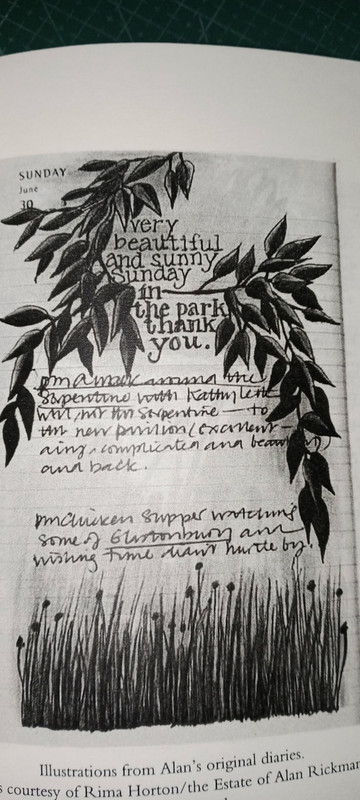 SUNDAY
June
30
Very
beautiful
and sunny
Sunday
in
the park
thank
you.
pm a walk around the
Serpentine with Kathy Lette
well, not the serpentine — to
the new pavilion (excellent —
airy, complicated and beautiful)
and back.
pm Chicken Supper watching
some of Glastonbury and
wishing Time didn't hurtle by.
Illustrations from Alan's original diaries.
s courtesy of Rima Horton/the Estate of Alan Rickman